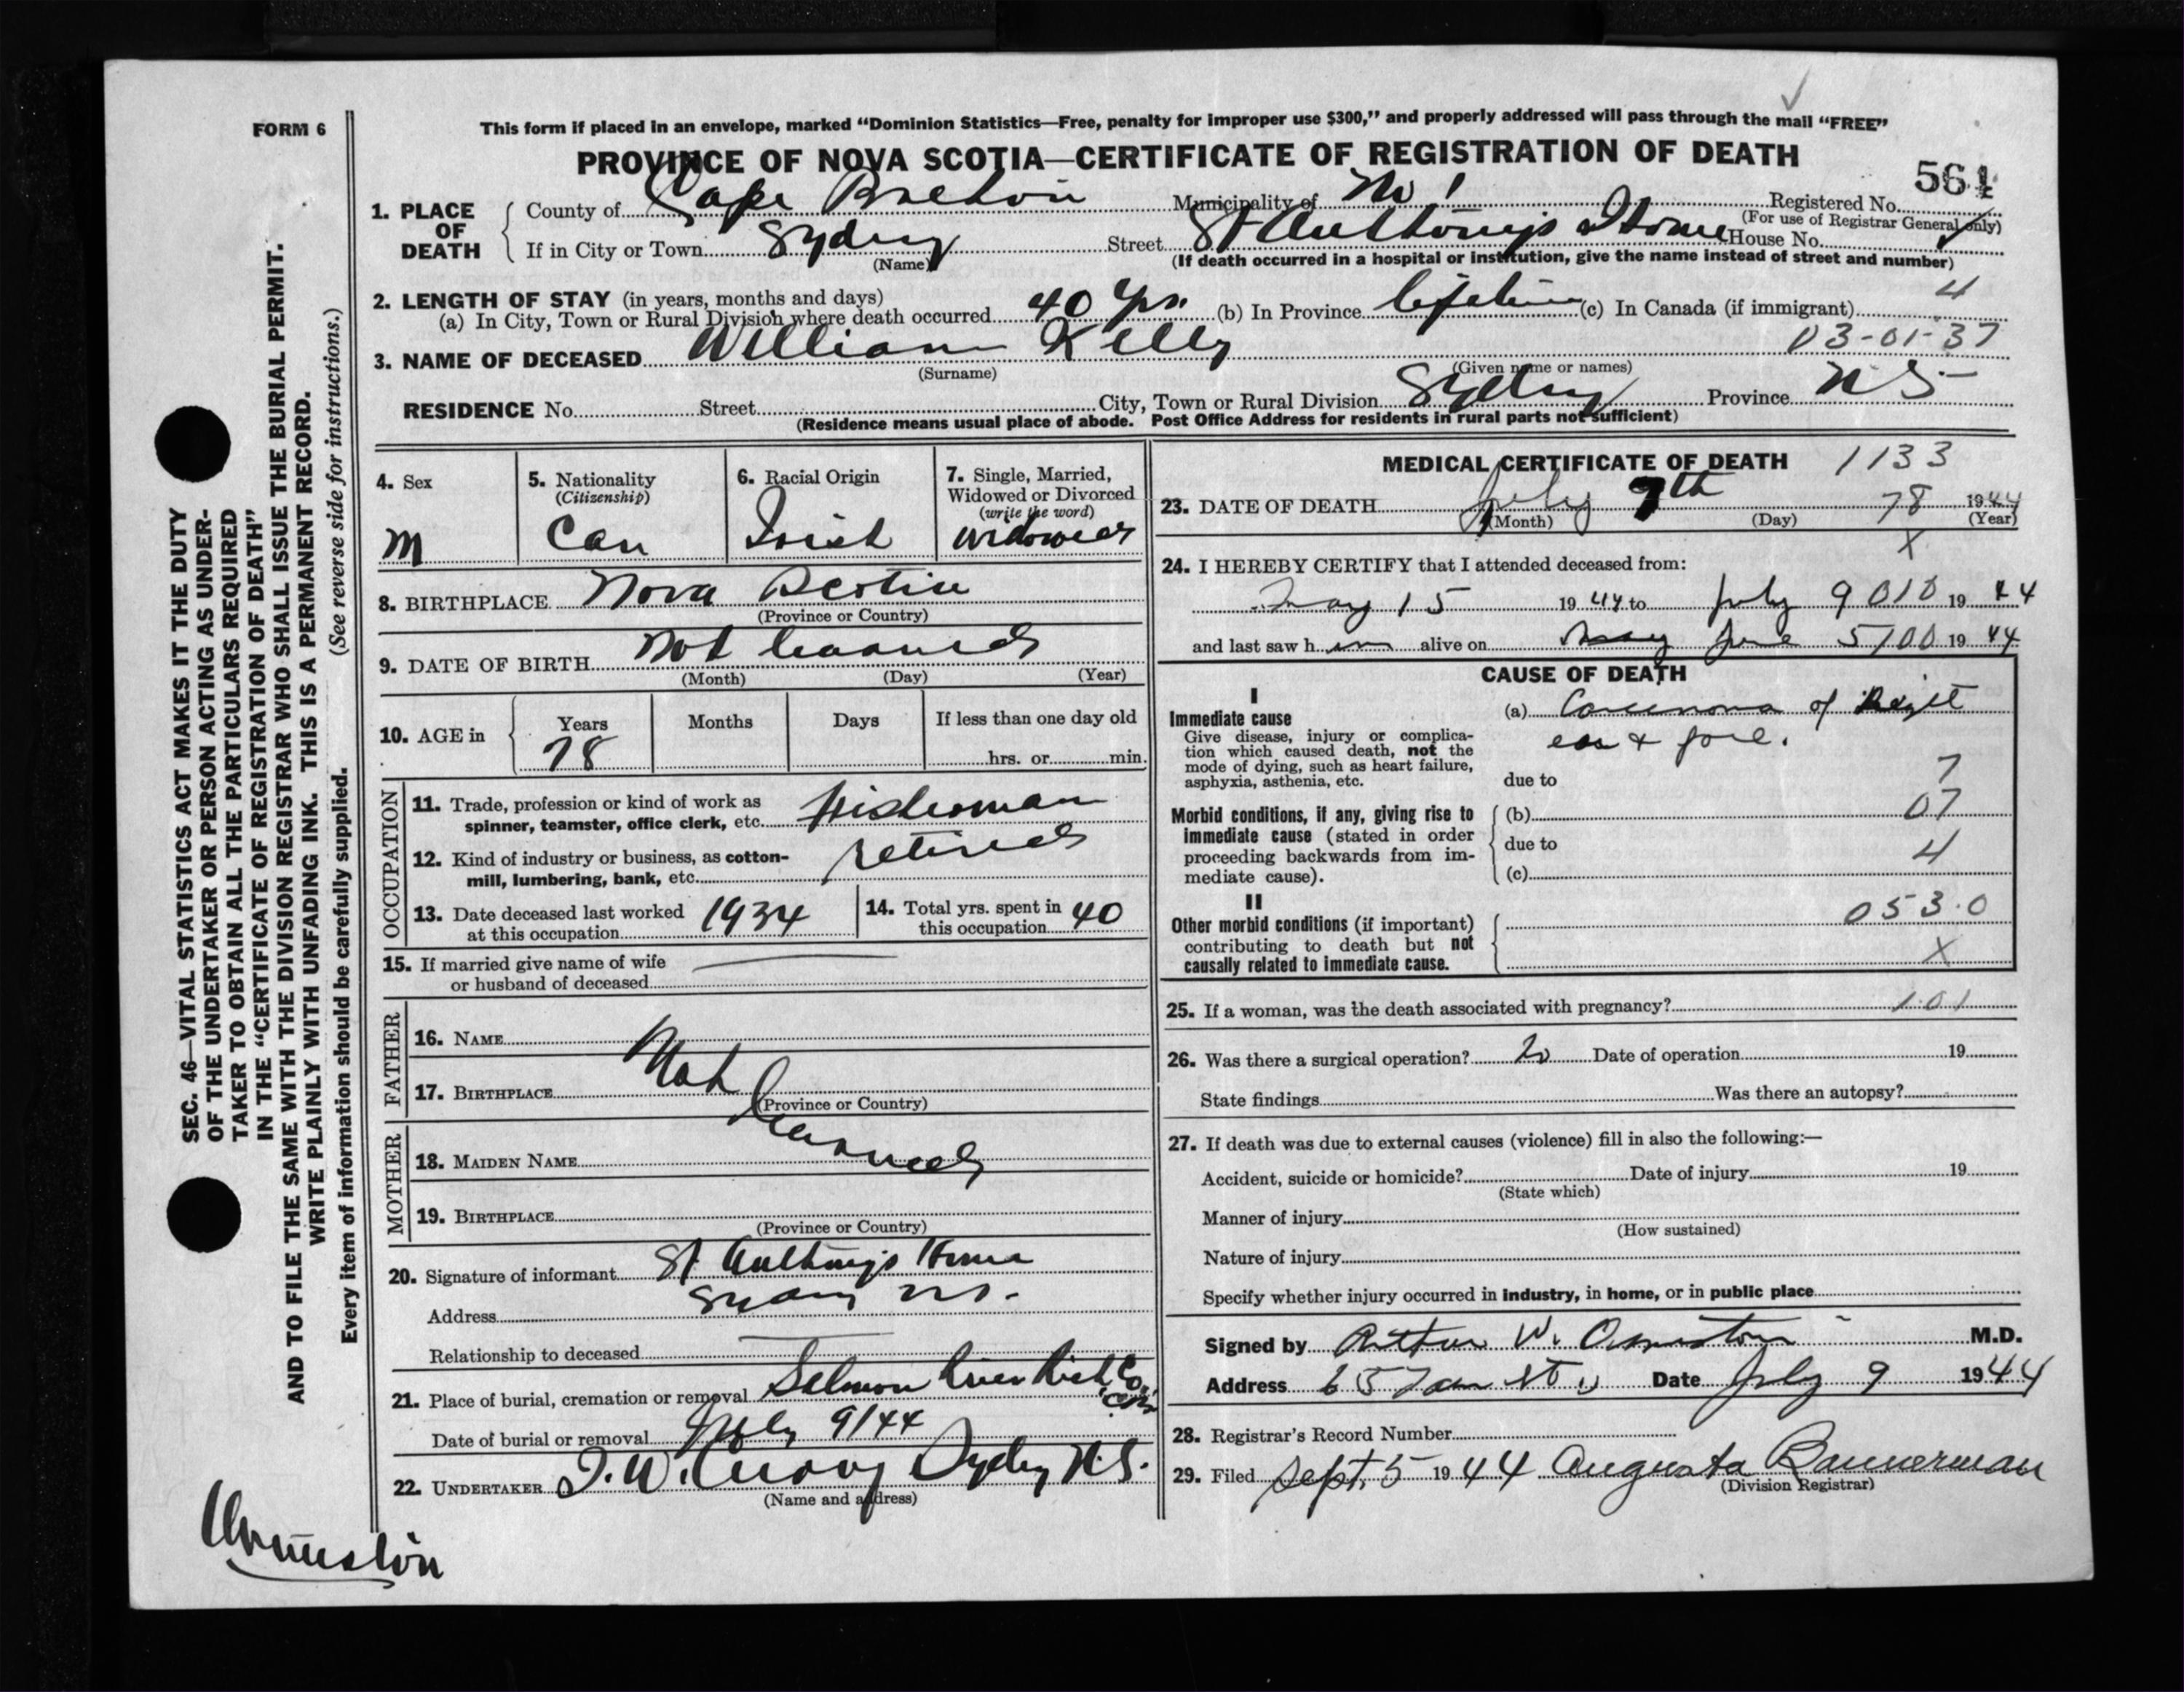 FORM 6
This form if placed in an envelope, marked “Dominion Statistics—Free, penalty for improper use $300,” and properly addressed will pass through the mail “FREE”
PROVINCE OF NOVA SCOTIA—CERTIFICATE OF REGISTRATION OF DEATH
564
1. PLACE OF DEATH
County of Cape Breton Municipality of No 1 Registered No.
(For use of Registrar General only)
If in City or Town Sydney Street St Anthonys Home House No.
(Name)
(If death occurred in a hospital or institution, give the name instead of street and number)
2. LENGTH OF STAY (in years, months and days)
(a) In City, Town or Rural Division where death occurred 40 Yrs. (b) In Province lifetime (c) In Canada (if immigrant)
4
3. NAME OF DECEASED William Kelly 03-01-37
(Surname) (Given name or names)
RESIDENCE No. Street City, Town or Rural Division Sydney Province N S
(Residence means usual place of abode. Post Office Address for residents in rural parts not sufficient)
4. Sex
M
5. Nationality
(Citizenship)
Can
6. Racial Origin
Irish
7. Single, Married,
Widowed or Divorced
(write the word)
widower
8. BIRTHPLACE Nova Scotia
(Province or Country)
9. DATE OF BIRTH Not learned
(Month) (Day) (Year)
10. AGE in
Years Months Days If less than one day old
78 hrs. or min.
OCCUPATION
11. Trade, profession or kind of work as
spinner, teamster, office clerk, etc. Fisherman
12. Kind of industry or business, as cotton-
mill, lumbering, bank, etc. retired
13. Date deceased last worked
at this occupation 1934
14. Total yrs. spent in
this occupation 40
15. If married give name of wife
or husband of deceased
FATHER
16. NAME
Not
17. BIRTHPLACE
(Province or Country)
learned
MOTHER
18. MAIDEN NAME
19. BIRTHPLACE
(Province or Country)
20. Signature of informant St Anthonys Home
Address Sydney N.S.
Relationship to deceased
21. Place of burial, cremation or removal Salmon River Rich Co.
Date of burial or removal July 9/44
22. UNDERTAKER Sydney N.S.
(Name and address)
MEDICAL CERTIFICATE OF DEATH
1133
23. DATE OF DEATH July 9th 78 1944
(Month) (Day) (Year)
X
24. I HEREBY CERTIFY that I attended deceased from:
May 15 1944 to July 9 010 1944
and last saw him alive on May June 5/00 1944
CAUSE OF DEATH
I
Immediate cause
Give disease, injury or complica-
tion which caused death, not the
mode of dying, such as heart failure,
asphyxia, asthenia, etc.
(a) Carcinoma of Right
ear &
due to
7
Morbid conditions, if any, giving rise to
immediate cause (stated in order
proceeding backwards from im-
mediate cause).
(b) 07
due to
4
(c)
II
Other morbid conditions (if important)
contributing to death but not
causally related to immediate cause.
053.0
X
25. If a woman, was the death associated with pregnancy? 101
26. Was there a surgical operation? No Date of operation 19
State findings Was there an autopsy?
27. If death was due to external causes (violence) fill in also the following:—
Accident, suicide or homicide? Date of injury 19
(State which)
Manner of injury
(How sustained)
Nature of injury
Specify whether injury occurred in industry, in home, or in public place
Signed by Arthur W. Ormiston M.D.
Address 65 Date July 9 1944
28. Registrar's Record Number
29. Filed Sept. 5 1944 Augusta Bannerman
(Division Registrar)
SEC. 46—VITAL STATISTICS ACT MAKES IT THE DUTY
OF THE UNDERTAKER OR PERSON ACTING AS UNDER-
TAKER TO OBTAIN ALL THE PARTICULARS REQUIRED
IN THE “CERTIFICATE OF REGISTRATION OF DEATH”
AND TO FILE THE SAME WITH THE DIVISION REGISTRAR WHO SHALL ISSUE THE BURIAL PERMIT.
WRITE PLAINLY WITH UNFADING INK. THIS IS A PERMANENT RECORD.
Every item of information should be carefully supplied. (See reverse side for instructions.)
Ormiston